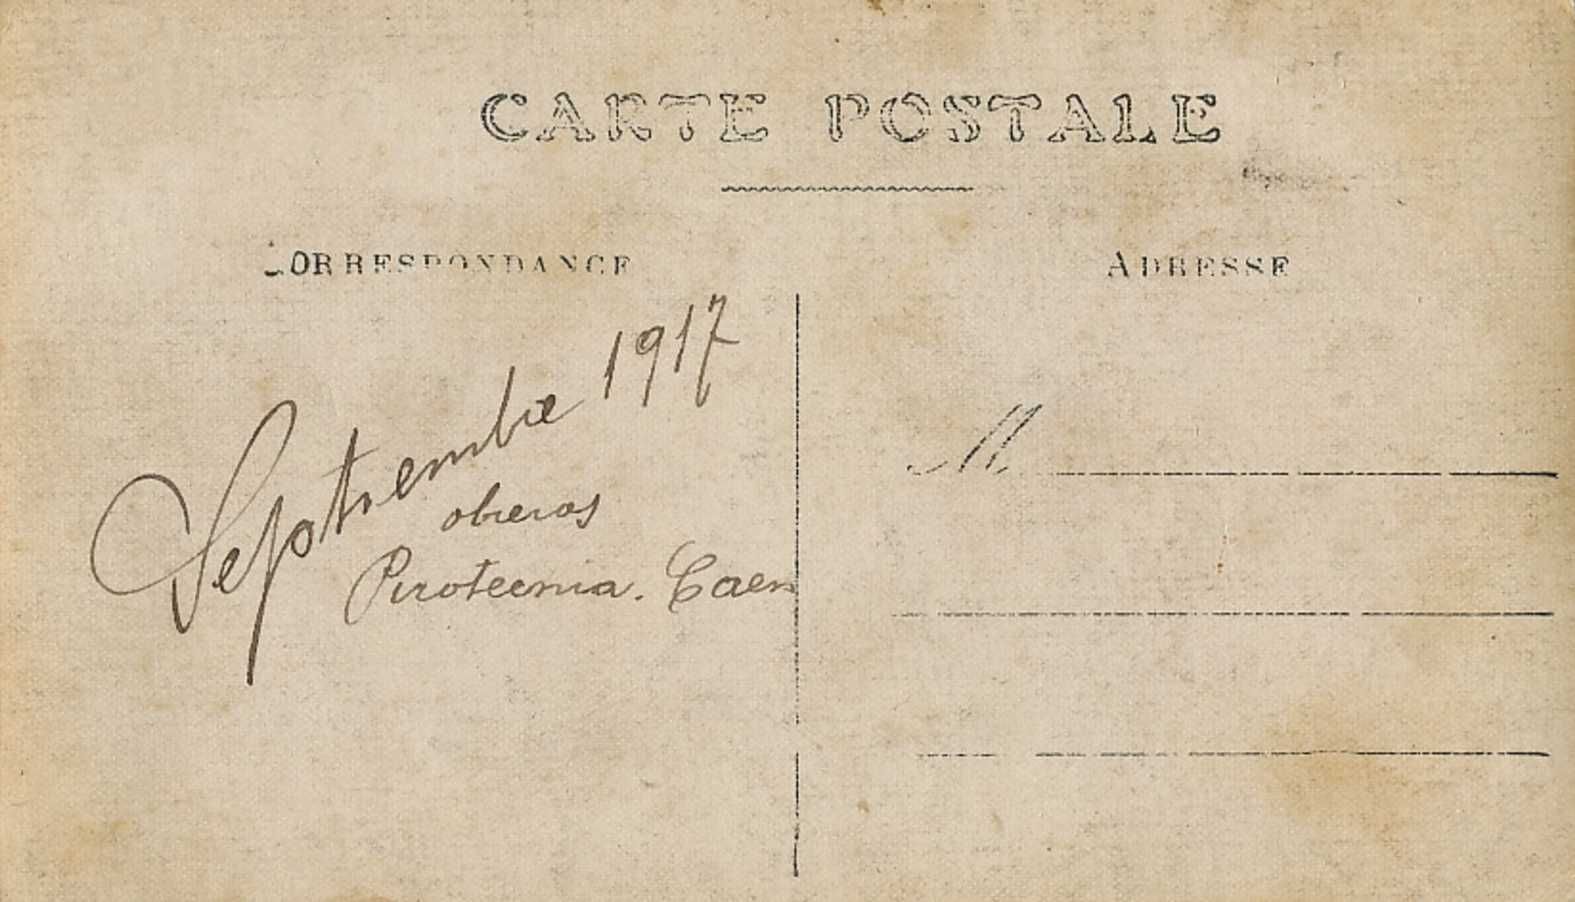 CARTE POSTALE
CORRESPONDANCE
ADRESSE
Septiembre 1917
obreros
Pirotecnia. Caen
M